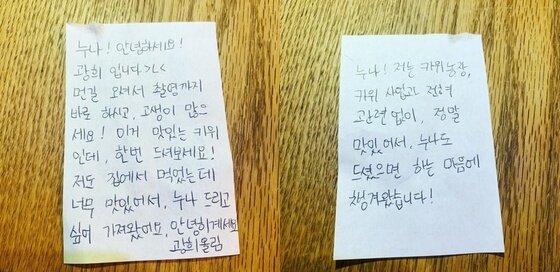 누나! 안녕하세요!
광희 입니다>ㄴ<
먼길 오셔서 촬영까지
바로 하시고, 고생이 많으
세요! 이거 맛있는 키위
인데, 한번 드셔보세요!
저도 집에서 먹었는데
너무 맛있어서, 누나 드리고
싶어 가져왔어요, 안녕히계세요
광희올림
누나! 저는 키위농장,
키위 사업과 전혀
관련 없이, 정말
맛있어서, 누나도
드셨으면 하는 마음에
챙겨왔습니다!